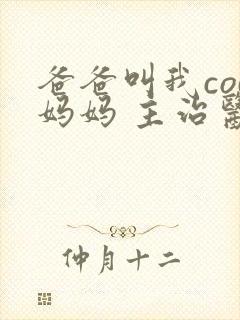 爸爸叫我co
妈妈 主治醫
仲月十二